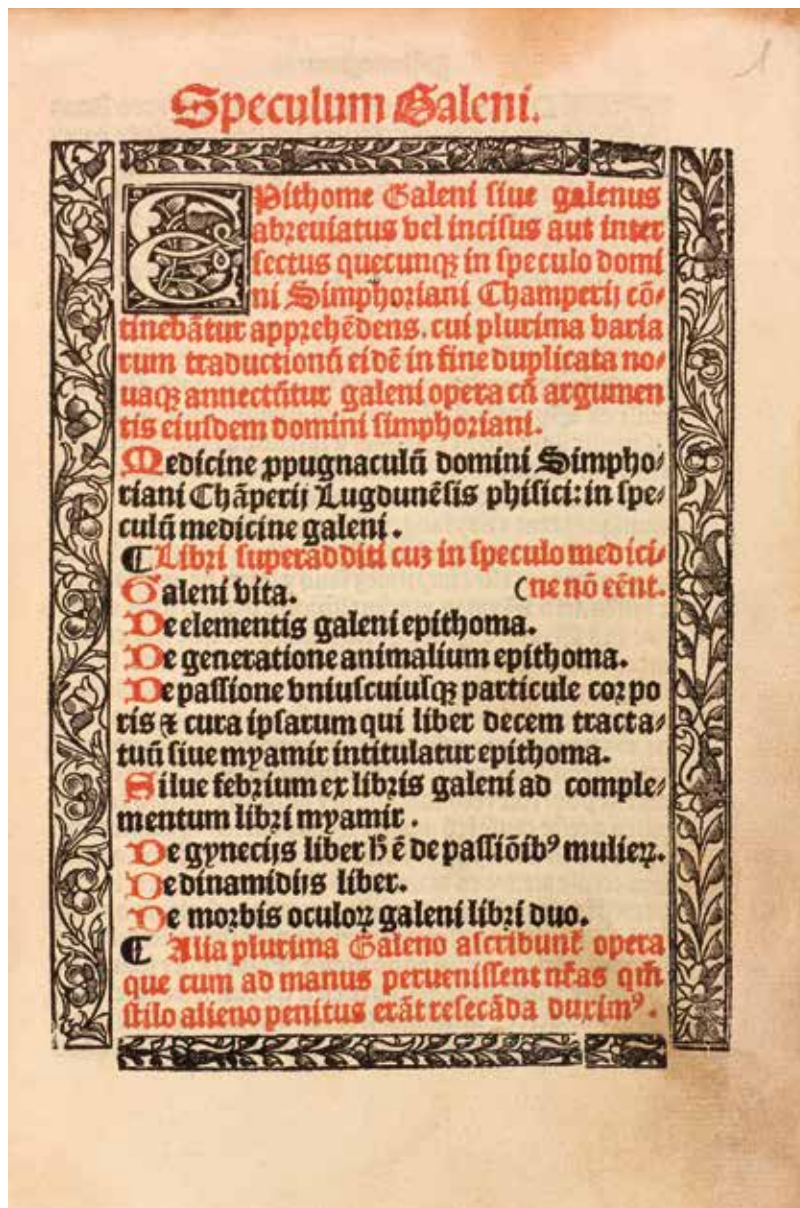 Speculum Galeni.
EPithome Galeni siue galenus
abreuiatus vel incisus aut inter
sectus quecunqꝫ in speculo domi
ni Simphoriani Champerij cõ⸗
tinebãtur apprehẽdens. cui plurima varia
rum traductionũ eidẽ in fine duplicata no⸗
uaqꝫ annectũtur galeni opera cũ argumen
tis eiusdem domini simphoriani.
Medicine ꝓpugnaculũ domini Simpho⸗
riani Chãperij Lugdunẽsis phisici: in spe⸗
culũ medicine galeni.
¶ Libri superadditi cuꝫ in speculo medici⸗
Galeni vita. (ne nõ eẽnt.
De elementis galeni epithoma.
De generatione animalium epithoma.
De passione vniuscuiusqꝫ particule corpo
ris ⁊ cura ipsarum qui liber decem tracta⸗
tuũ siue myamir intitulatur epithoma.
Silue febrium ex libris galeni ad comple⸗
mentum libri myamir.
De gynecijs liber h̄ ẽ de passiõibꝰ mulieꝝ.
De dinamidijs liber.
De morbis oculoꝝ galeni libri duo.
¶ Alia plurima Galeno ascribunt̃ opera
que cum ad manus peruenissent nr̃as qm̃
stilo alieno penitus erãt resecãda duximꝰ.